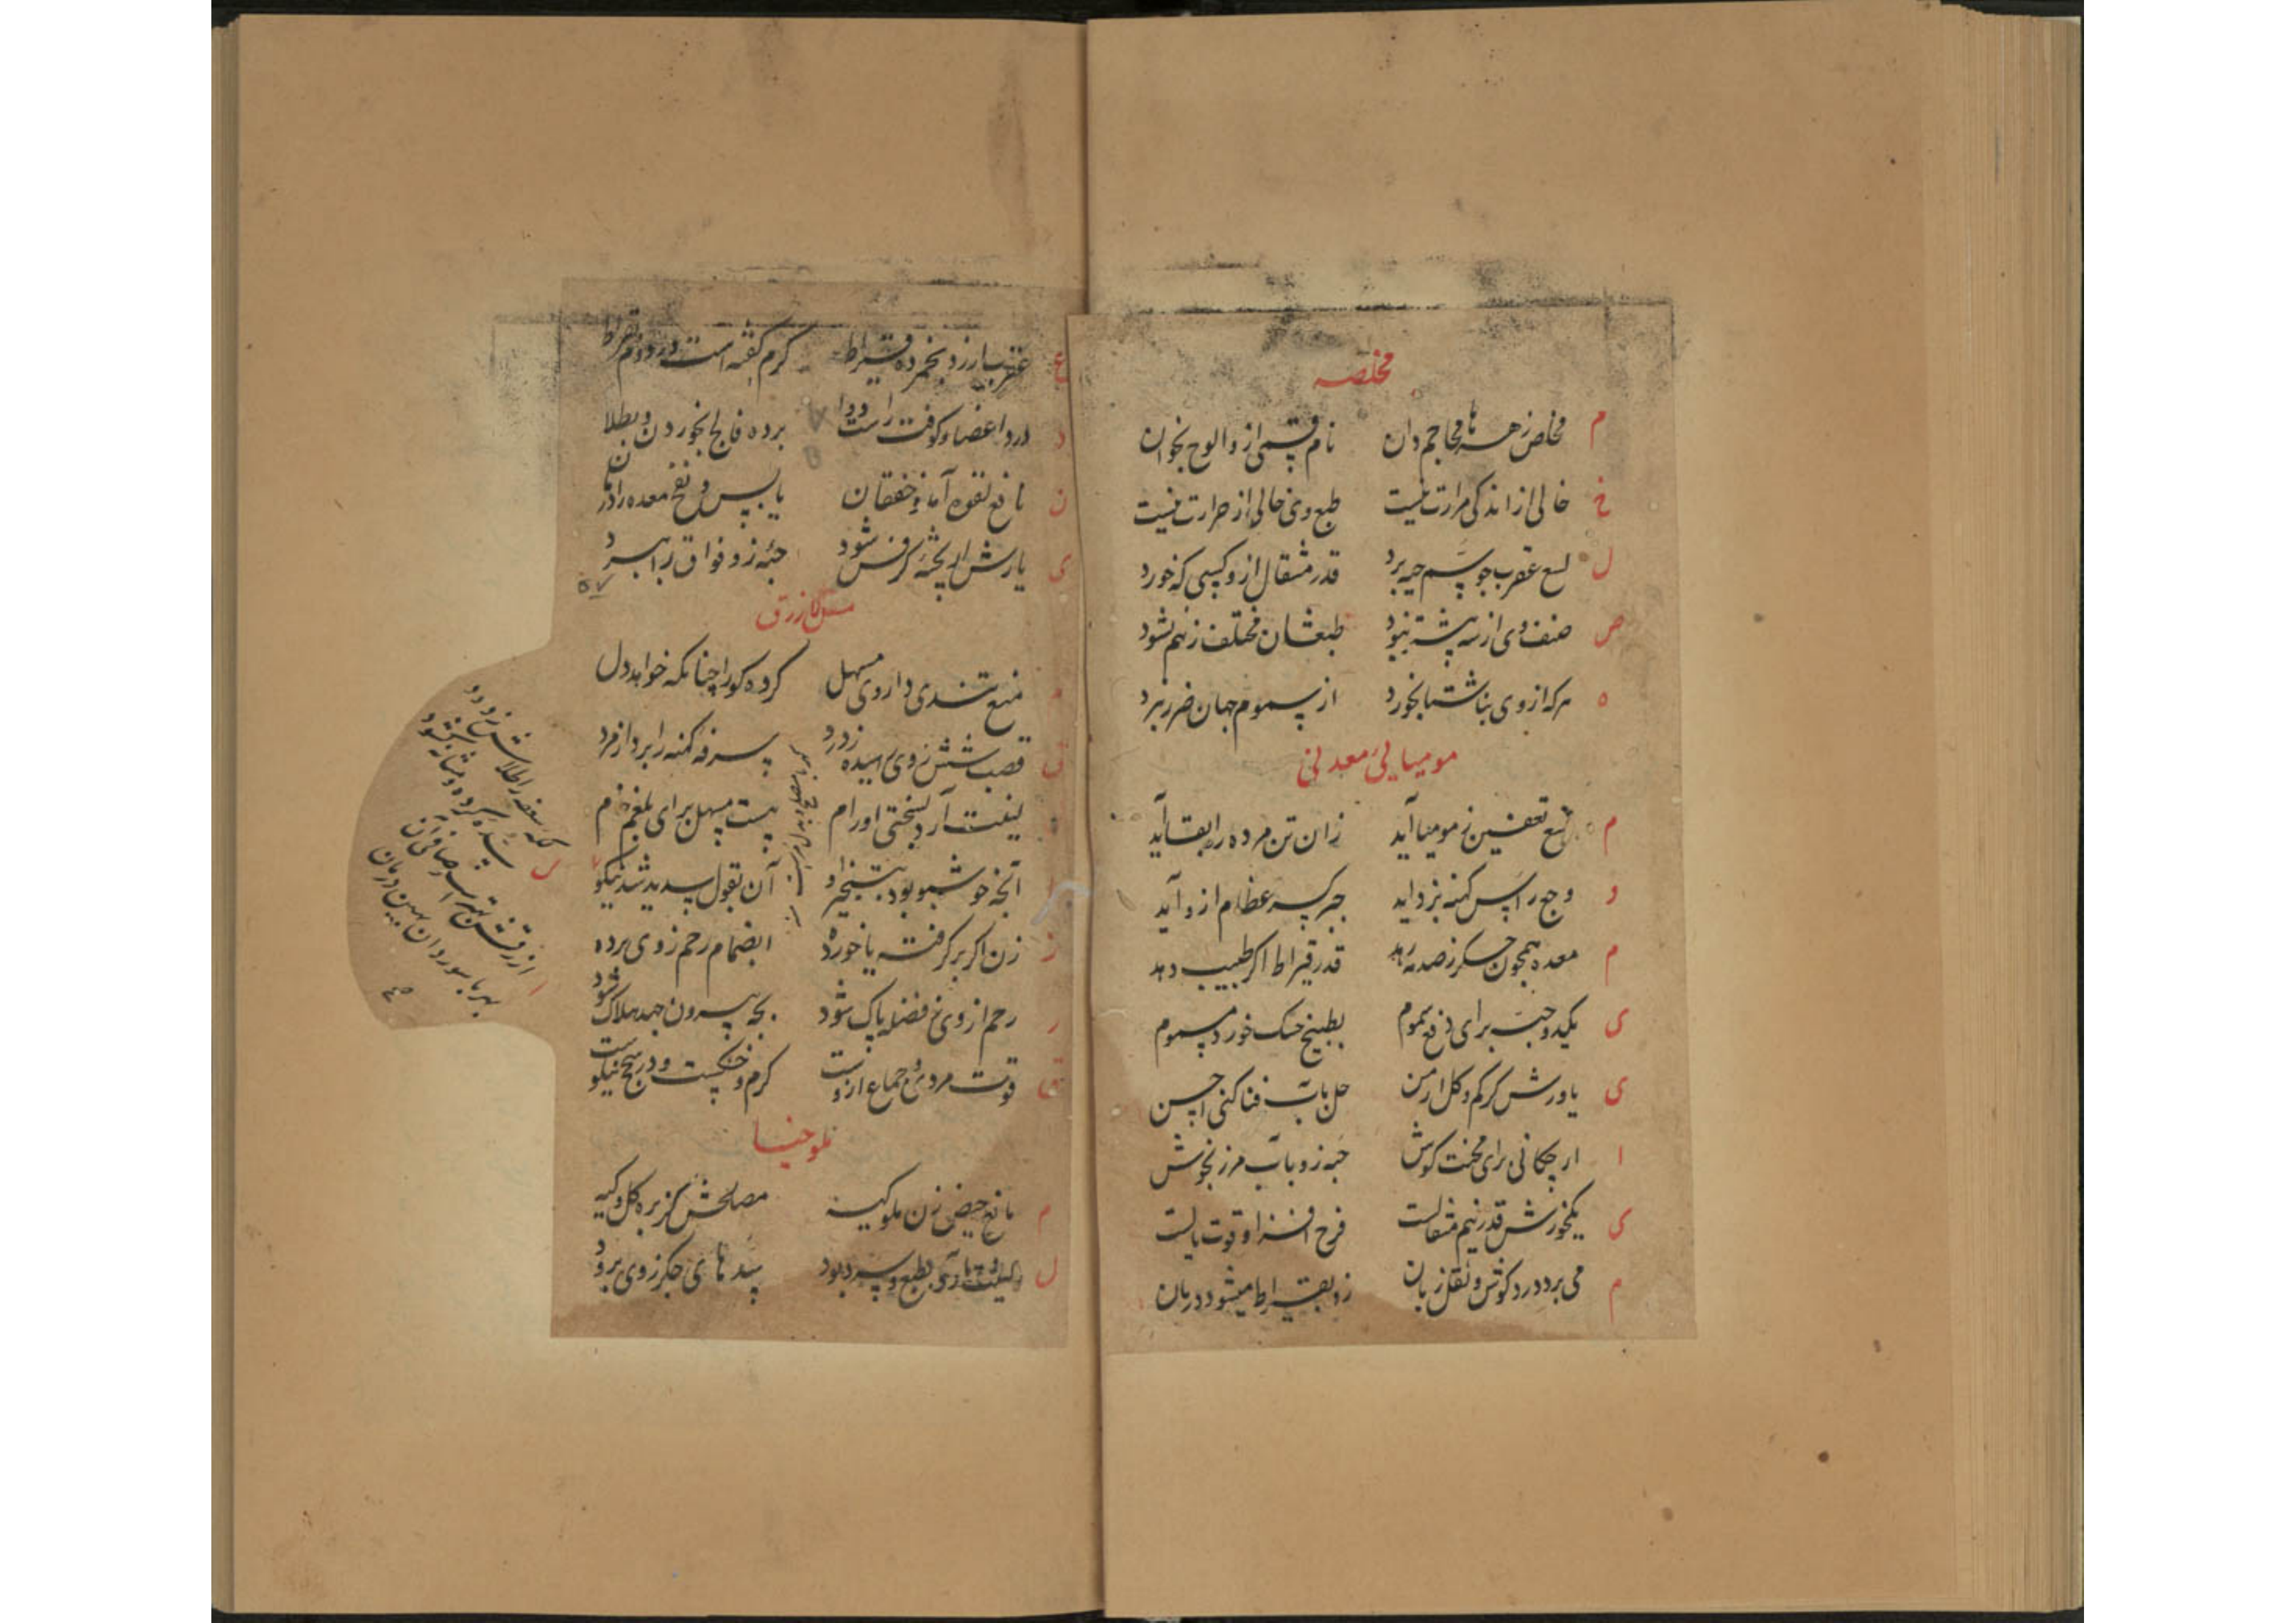 مخلصه
م مخلص زهرها محاجم دان نام قسمی از و الوح بخوان
خ خالی از اندکی مرارت نیست طبع وی خالی از حرارت نیست
ل لسع عقرب چو سم حیه برد قدر مثقال ازو کسی که خورد
ص صنف وی از سه بیشتر نبود طبعشان مختلف زهم نشود
ه هرکه از وی بناشتها بخورد از سموم جهان ضرر نبرد
مومیایی معدنی
م منع تعفین ز مومیا آید زان تن مرده را بقا آید
و وجع راس کهنه بزداید جبر کسر عظام ازو آید
م معده همچون جگر ز صدمه رهد قدر قیراط اگر طبیب دهد
ی یکدو حبت برای دفع سموم بطبیخ حسک خورد مسموم
ی یاورش کرکم و گل ارمن حل بآب قنا کنی احسن
ا ار چکانی برای محنت گوش حبه زو بآب مرزنجوش
ی یکخورش قدر نیم مثقالست فرح افزا و قوت بالست
م می برد درد گوش و ثقل زبان زو بقیراط میشود درمان
ع عقرب ار زد بخور ده قیراط گرم گفته است در دوم بقراط
د درد اعضا و کوفت راست دوا برده فالج بخوردن و بطلا
ن نافع لقوه آمد و خفقان یابس و نفخ معده را درمان
ی یارش ار بخته کرفس شود حبه زو فواق را ببرد
مقل ازرق
م منع تندی داروی مسهل کرده کور را چنانکه خواهد دل
ق قصب شش ز وی رهیده ز درد سرفه کهنه را برد از مرد
لینت آرد بسختی اورام هست مسهل برای بلغم خام
ا آنچه خوشبو بود بتبخیر او آن بقول سدید شد نیکو
ز زن اگر برگرفته یا خورده انضمام رحم ز وی برده
ر رحم از وی ز فضله پاک شود بچه بیرون جهد هلاک شود
ق قوت مردی و جماع ازوست گرم و خشکست و در سحج نیکوست
س که سعفه را طلاش زدود
سده گرده و مثانه گشود
ا ازرقش بهتر است صافی آن
بهر باسور دان بهین درمان
ملوخیا
م مانع حیض زن ملوکیه مصلحش کزبره گل وکیه
ل لینت آرد بطبع و سرد بود سده های جگر ز وی برود